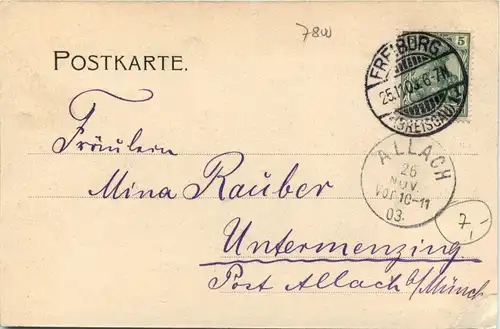 7800
POSTKARTE.
5
FREIBURG
25.11.03. 6-7N.
(BREISGAU)
ALLACH
26
NOV.
Vor. 10-11
03.
7,-
Fräulein
Mina Rauber
Untermenzing
Post Allach b/Münch